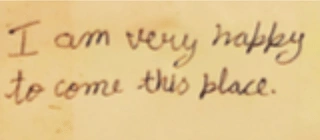 I am very happy
to come this place.